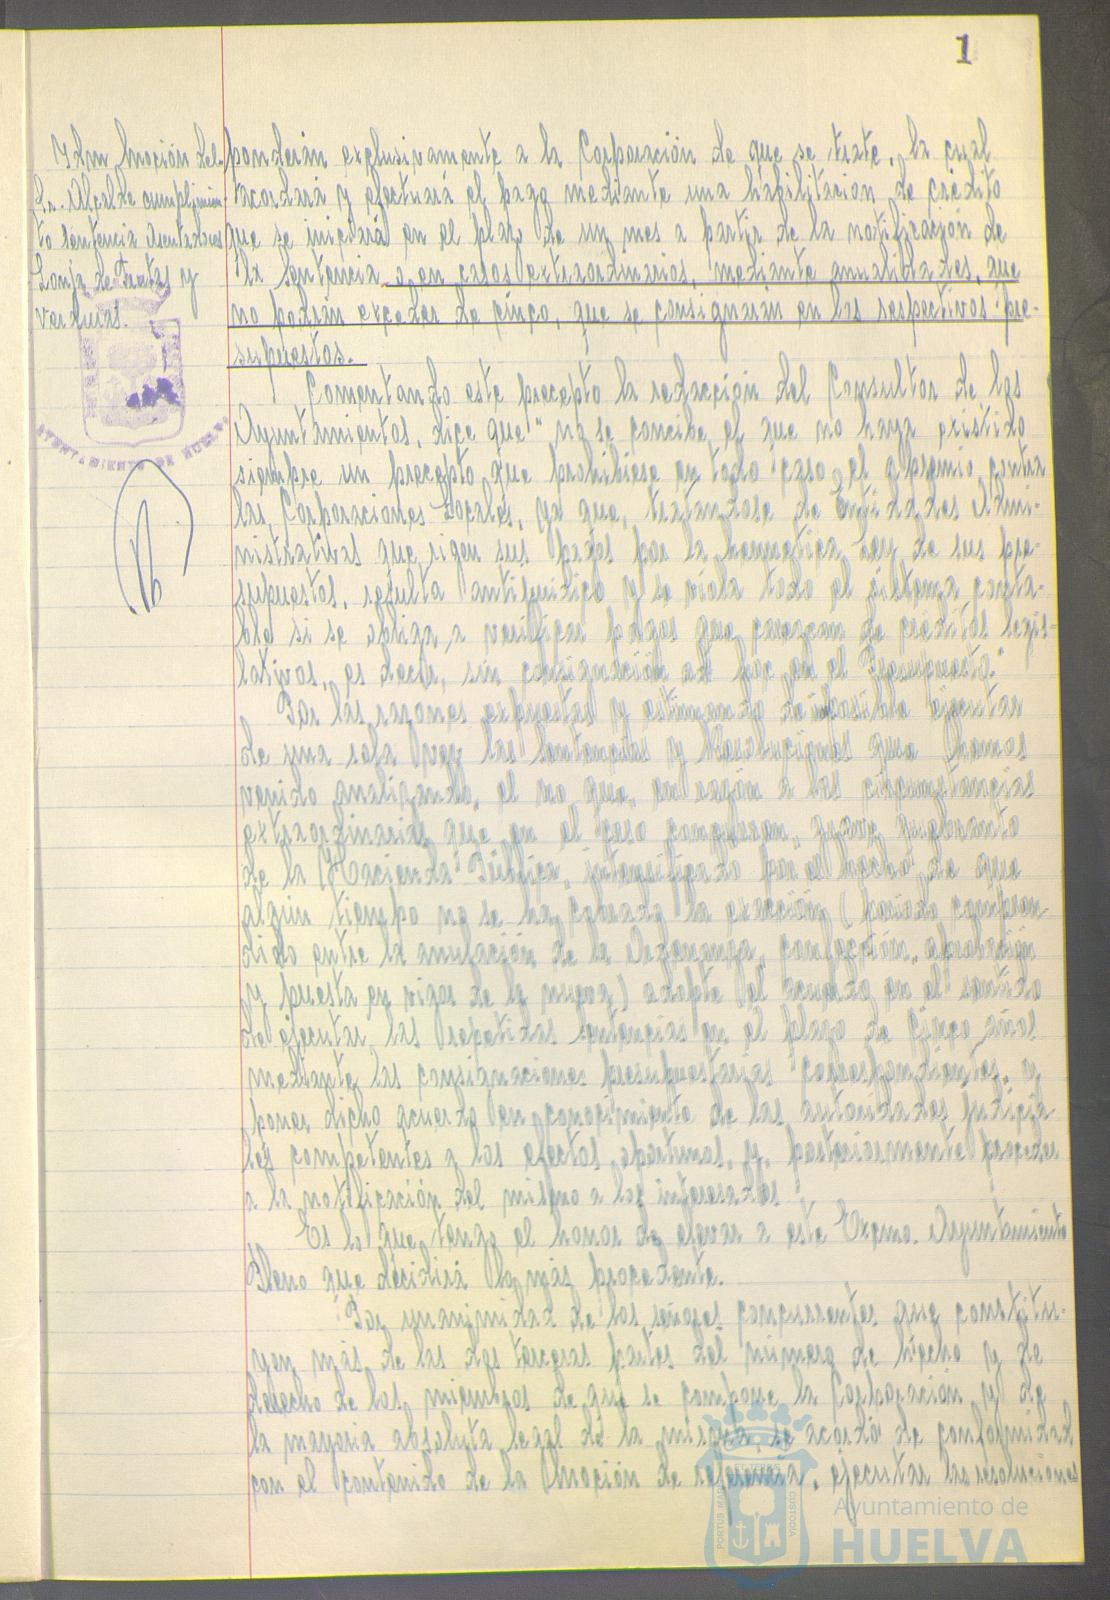 1
Idm Moción del
Sr. Alcalde cumplimien-
to sentencia Asentadores
Lonja de Frutas y
Verduras.
AYUNTAMIENTO DE HUELVA
ponderán exclusivamente a la Corporación de que se trate, la cual
acordará y efectuará el pago mediante una habilitación de crédito
que se iniciará en el plazo de un mes a partir de la notificación de
la Sentencia o en casos extraordinarios, mediante anualidades, que
no podrán exceder de cinco, que se consignarán en los respectivos pre-
supuestos.
Comentando este precepto la redacción del Consultor de los
Ayuntamientos, dice que "no se concibe el que no haya existido
siempre un precepto que prohibiese en todo caso el apremio contra
las Corporaciones Locales, ya que, tratándose de Entidades Admi-
nistrativas que rigen sus pagos por la hermética Ley de sus pre-
supuestos, resulta antijurídico y se viola todo el sistema conta-
ble si se obliga a verificar pagos que carezcan de créditos legis-
lativos, es decir, sin consignación ad hoc en el Presupuesto."
Por las razones expuestas y estimando imposible ejecutar
de una sola vez las Sentencias y Resoluciones que hemos
venido analizando, el no que, en razón a las circunstancias
extraordinarias que en el caso concurren, grave quebranto
de la Hacienda Pública, intensificado por el hecho de que
algún tiempo no se ha cobrado la exacción (período compren-
dido entre la anulación de la Ordenanza, confección, aprobación
y puesta en vigor de la nueva) adopte el acuerdo en el sentido
de ejecutar las repetidas Sentencias en el plazo de cinco años
mediante las consignaciones presupuestarias correspondientes, y
poner dicho acuerdo en conocimiento de las autoridades judicia-
les competentes a los efectos oportunos, y, posteriormente proceder
a la notificación del mismo a los interesados.
Es lo que tengo el honor de elevar a este Excmo. Ayuntamiento
Pleno que decidirá lo más procedente.
Por unanimidad de los señores concurrentes que constitu-
yen más de las dos terceras partes del número de hecho y de
derecho de los miembros de que se compone la Corporación y de
la mayoría absoluta legal de la misma, se acordó de conformidad
con el contenido de la Moción de referencia, ejecutar las resoluciones
PORTUS MARIS
CUSTODIA
Ayuntamiento de
HUELVA